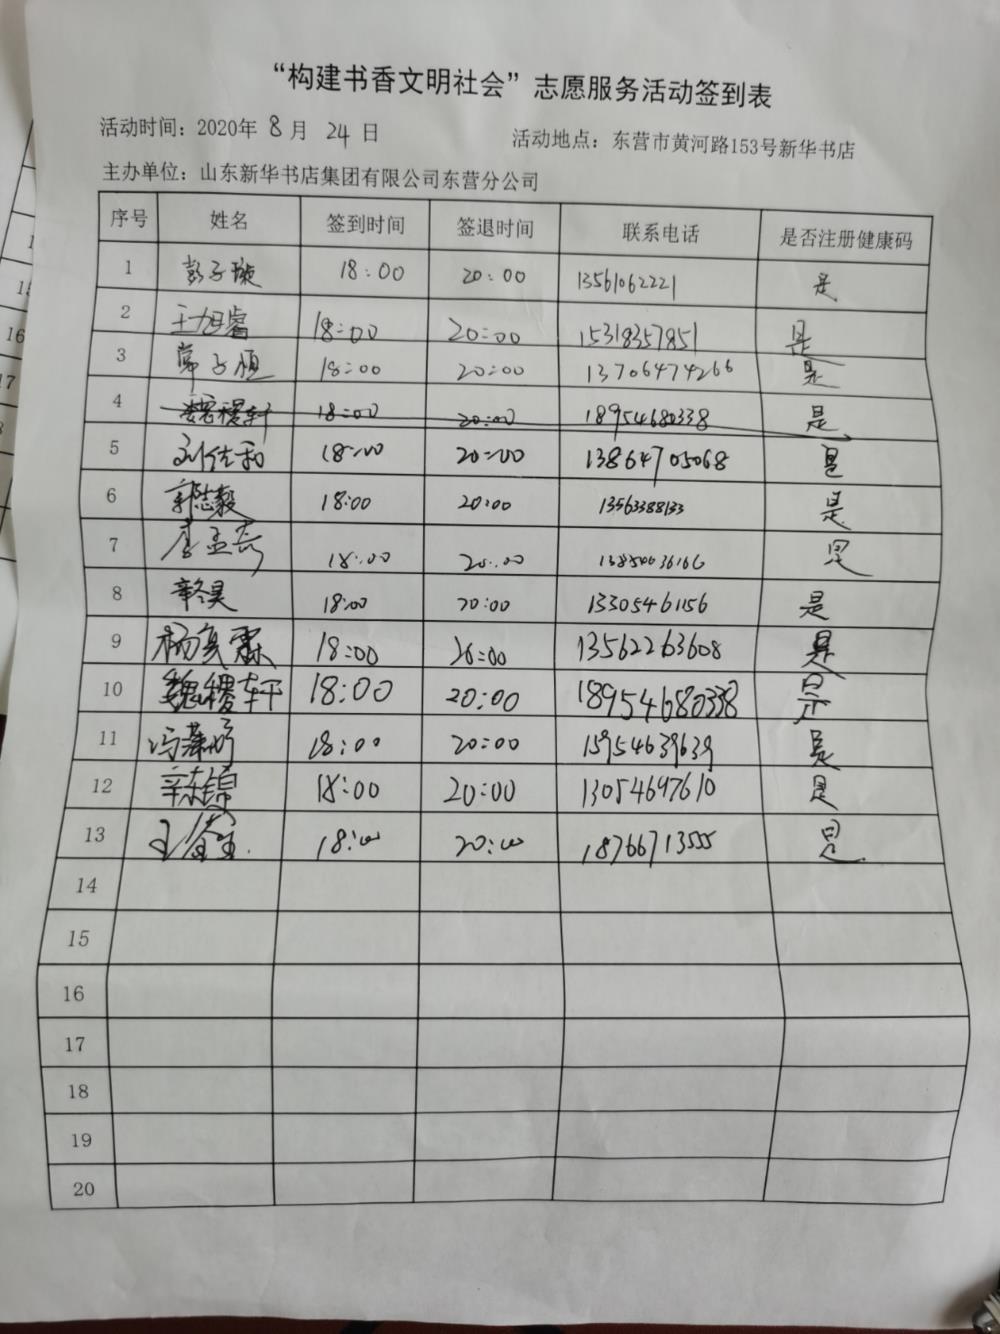 “构建书香文明社会”志愿服务活动签到表
活动时间：2020年 8 月 24 日 活动地点：东营市黄河路153号新华书店
主办单位：山东新华书店集团有限公司东营分公司
序号 姓名 签到时间 签退时间 联系电话 是否注册健康码
1 彭子璇 18:00 20:00 13561062221 是
2 王旭睿 18:00 20:00 15318357851 是
3 常子恒 18:00 20:00 13706474266 是
4 魏稷轩 18:00 20:00 18954680338 是
5 刘佐和 18:00 20:00 13864705068 是
6 郭志毅 18:00 20:00 13563388133 是
7 李孟磊 18:00 20:00 是
8 18:00 20:00 13305461156 是
9 杨复霖 18:00 20:00 13562263608 是
10 魏稷轩 18:00 20:00 18954680338 是
11 18:00 20:00 15954639639 是
12 辛东锦 18:00 20:00 13054697610 是
13 18:00 20:00 18766713555 是
14
15
16
17
18
19
20
16
17